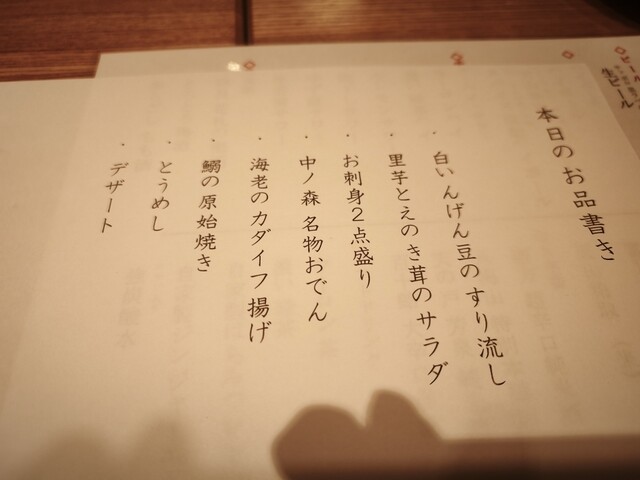 本日のお品書き
・白いんげん豆のすり流し
・里芋とえのき茸のサラダ
・お刺身2点盛り
・中ノ森名物おでん
・海老のカダイフ揚げ
・鰯の原始焼き
・とうめし
・デザート
生ビール